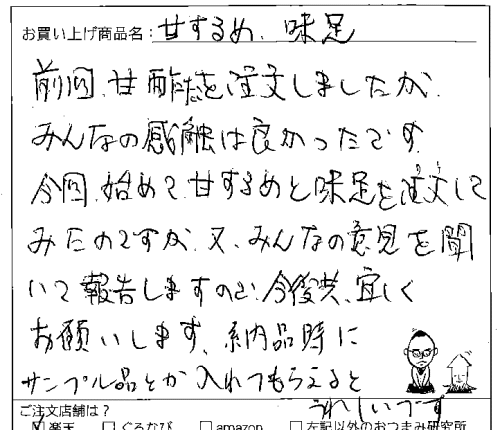 お買い上げ商品名：甘するめ、味足
前回、甘酢たを注文しましたが、
みんなの感触は良かったです。
今回、始めて甘するめと味足を注文して
みたのですが、又、みんなの意見を聞
いて報告しますので、今後共、宜しく
お願いします。納品時に
サンプル品とか入れてもらえると
うれしいです
ご注文店舗は？
楽天 □ぐるなび □amazon □左記以外のおつまみ研究所